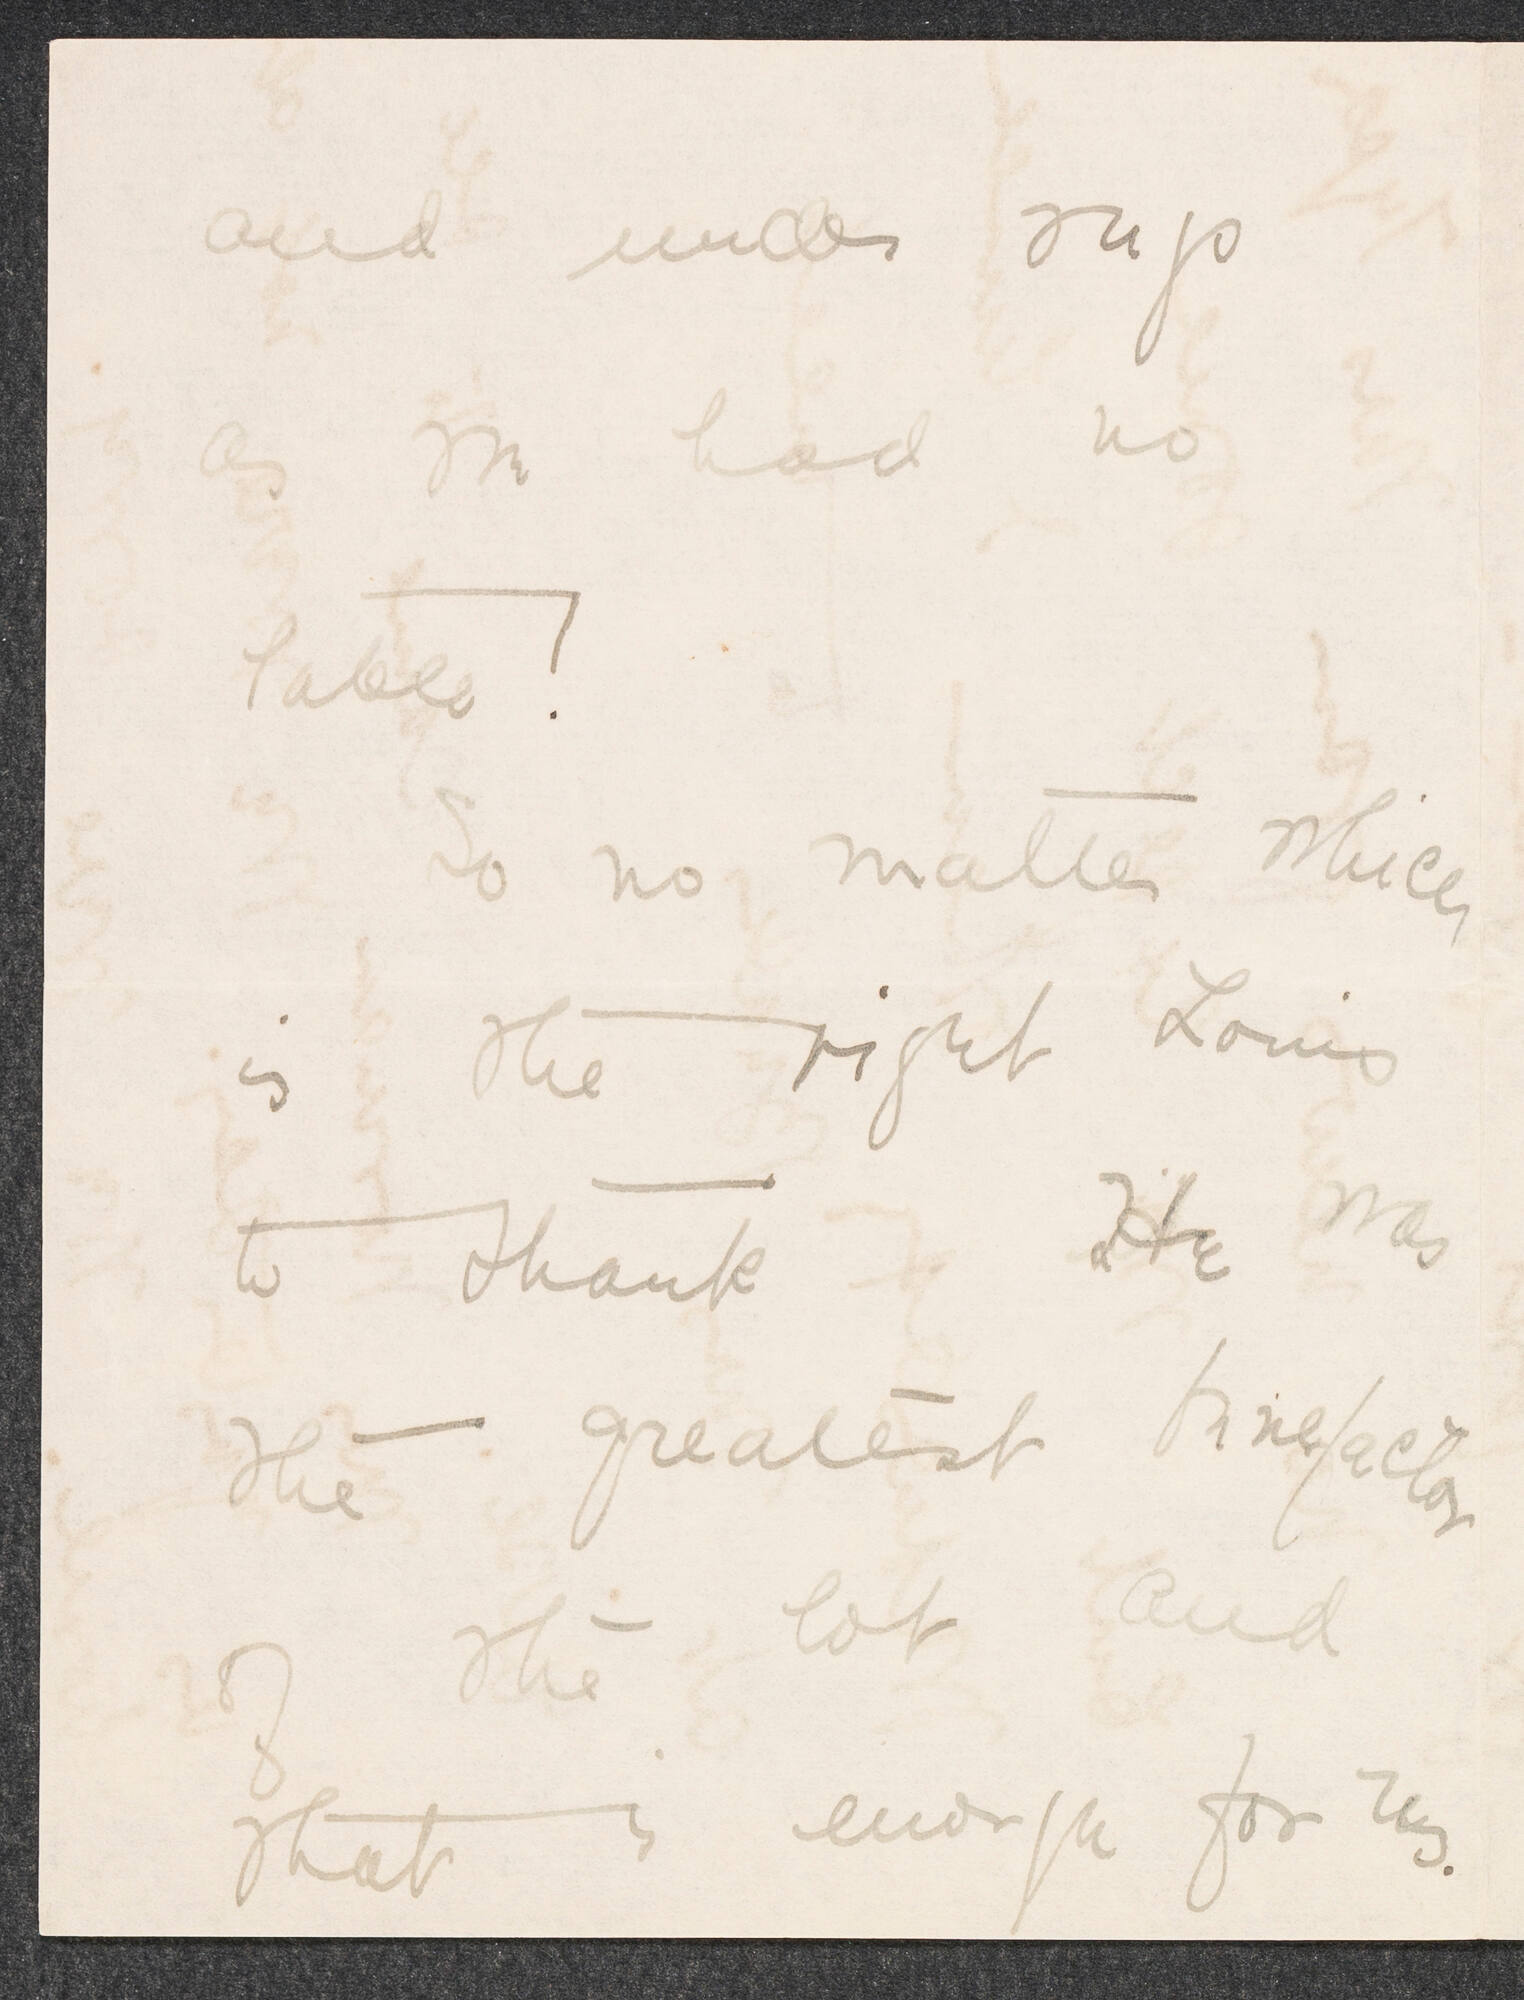 and under rugs
as we had no
table!
So no matter which
is the right Louis
to thank He was
the greatest benefactor
of the lot and
that is enough for us.